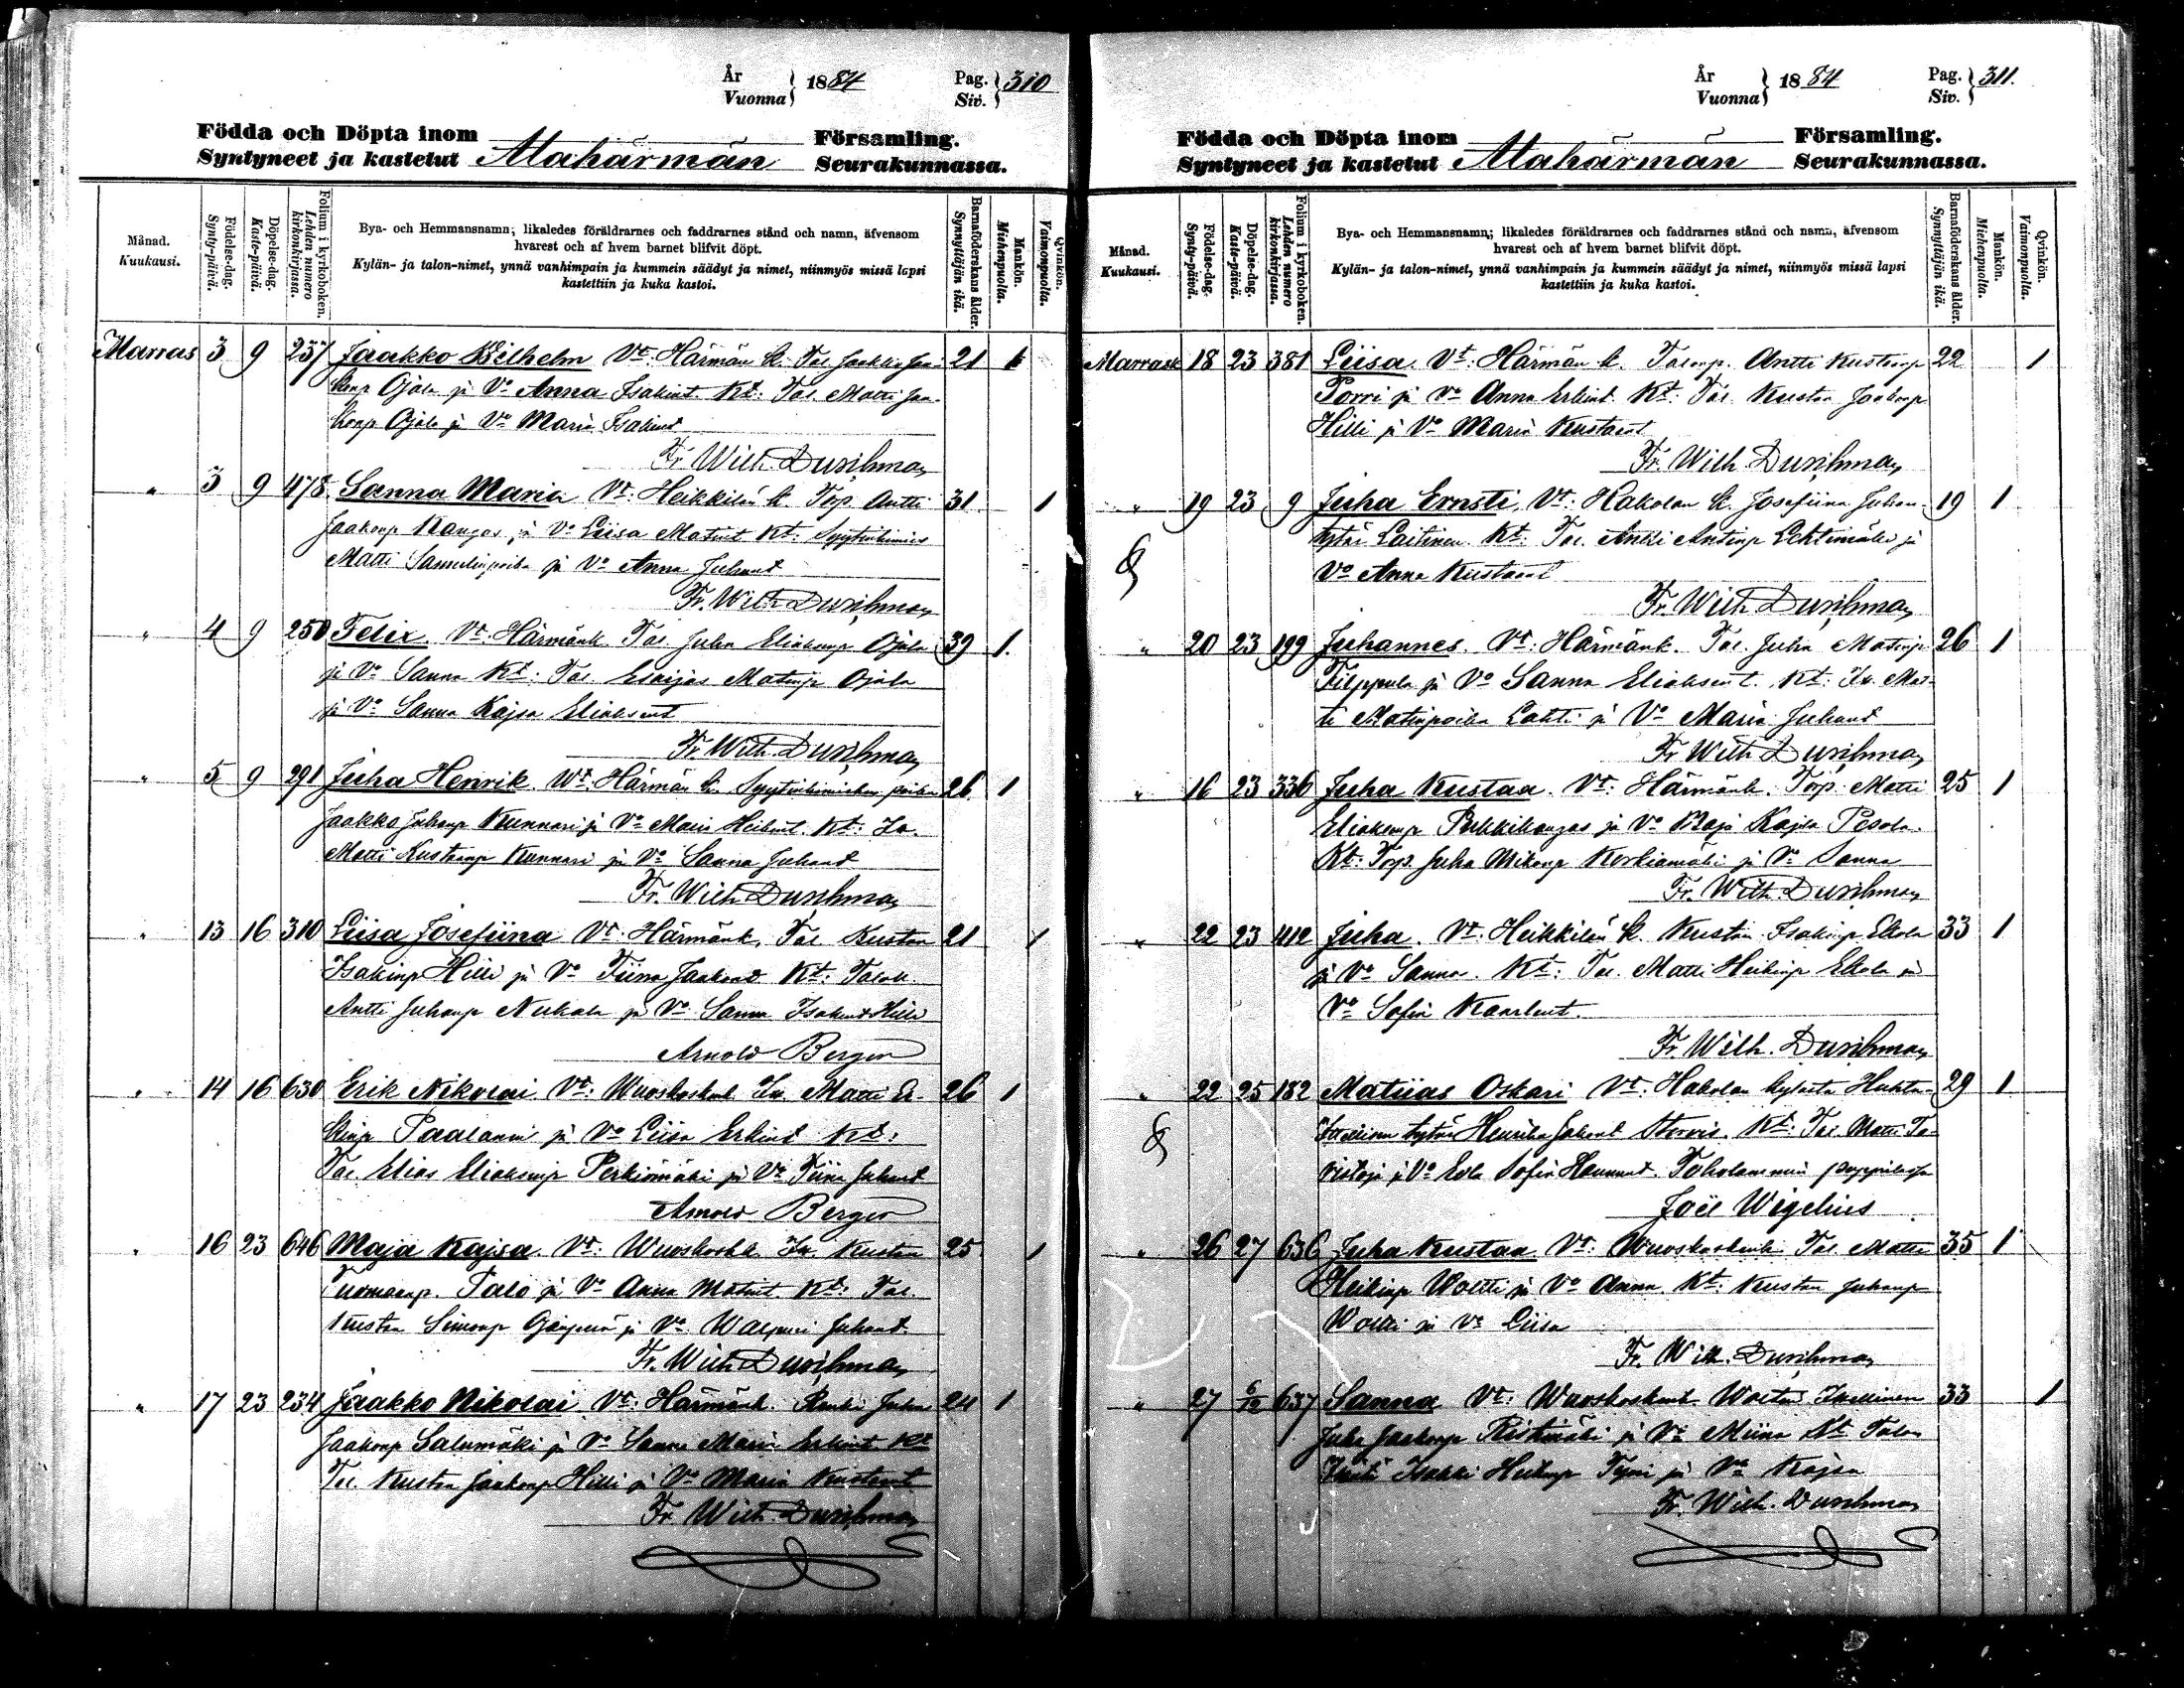 År
Vuonna } 1884 Pag.
Siv. } 310
Födda och Döpta inom Församling.
Syntyneet ja kastetut Alahärmän Seurakunnassa.
Månad.
Kuukausi.
Födelse-dag.
Synty-päivä.
Döpelse-dag.
Kaste-päivä.
Folium i kyrkoboken.
Lehden numero
kirkonkirjassa.
Bya- och Hemmansnamn; likaledes föräldrarnes och faddrarnes stånd och namn, äfvensom
hvarest och af hvem barnet blifvit döpt.
Kylän- ja talon-nimet, ynnä vanhimpain ja kummein säädyt ja nimet, niinmyös missä lapsi
kastettiin ja kuka kastoi.
Barnaföderskans ålder.
Synnyttäjän ikä.
Mankön.
Miehenpuolta.
Qvinkön.
Vaimonpuolta.
Marras 3 9 237 Jaakko Wilhelm Vt: Härmän k. Tal. Jaakko Jaa- 21 1
konp Ojala ja Vo Anna Isakint. Kt: Tal. Matti Jaa-
konp Ojala ja Vo Maria Isakint
Fr. Wilh. Durchman
" 3 9 478 Sanna Maria Vt: Heikkilän k. Torp. Antti 31 1
Jaakonp Kangas ja Vo Liisa Matint Kt: Syytinkimies
Matti Samelinpoika ja Vo Anna Juhant
Fr. Wilh. Durchman
" 4 9 250 Felix. Vt: Härmänk. Tal. Juha Eliaksenp Ojala 39 1.
ja Vo Sanna Kt: Tal. Esaijas Matinp Ojala
ja Vo Sanna Kajsa Eliaksent
Fr. Wilh. Durchman
" 5 9 291 Juha Henrik. Wt: Härmän k. Syytinkimiehen poika 26 1
Jaakko Juhanp Kunnari ja Vo Maria Heikint. Kt:
Matti Kustaanp Kunnari ja Vo Sanna Juhant
Fr. Wilh. Durchman
" 13 16 310 Liisa Josefiina Vt: Härmänk. Tal Kustaa 21 1
Isakinp Hilli ja Vo Tiina Jaakont Kt:
Antti Juhanp ja Vo Sanna Isakint Hilli
Arnold Berger
" 14 16 630 Erik Nikolai Vt: Wuoskoskenk Matti Er- 26 1
kinp Paalanen ja Vo Liisa Erkint Kt:
Tal. Elias Eliaksenp Perkiömäki ja Vo Tiina Juhant
Arnold Berger
" 16 23 646 Maja Kajsa. Vt: Wuoskoski k. Kustaa 25 1
Tuomaanp. Talo ja Vo Anna Matint Kt: Tal.
Kustaa Simonp ja Vo Walpuri Juhant
Fr. Wilh. Durchman
" 17 23 234 Jaakko Nikolai Vt: Härmänk. Renki Juha 24 1
Jaakonp Salumäki ja Vo Sanna Maria Erkint Kt
Tal. Kustaa Jaakonp Hilli ja Vo Maria Kustaant
Fr. Wilh. Durchman
År
Vuonna } 1884 Pag.
Siv. } 311.
Födda och Döpta inom Församling.
Syntyneet ja kastetut Alahärmän Seurakunnassa.
Månad.
Kuukausi.
Födelse-dag.
Synty-päivä.
Döpelse-dag.
Kaste-päivä.
Folium i kyrkoboken.
Lehden numero
kirkonkirjassa.
Bya- och Hemmansnamn; likaledes föräldrarnes och faddrarnes stånd och namn, äfvensom
hvarest och af hvem barnet blifvit döpt.
Kylän- ja talon-nimet, ynnä vanhimpain ja kummein säädyt ja nimet, niinmyös missä lapsi
kastettiin ja kuka kastoi.
Barnaföderskans ålder.
Synnyttäjän ikä.
Mankön.
Miehenpuolta.
Qvinkön.
Vaimonpuolta.
Marrask 18 23 381 Liisa. Vt: Härmän k. Talonp. Antti Kustaanp 22 1
Porri ja Vo Anna Erkint Kt: Tal. Kustaa Jaakonp
Hilli ja Vo Maria Kustaant
Fr. Wilh. Durchman
" 19 23 9 Juha Ernsti. Vt: Hakolan k. Josefiina Juhan- 19 1
tytär Laitinen. Kt: Tal. Antti Antinp Lehtimäki ja
Vo Anna Kustaant
Fr. Wilh. Durchman
" 20 23 199 Juhannes. Vt: Härmänk. Tal. Juha Matinp 26 1
Filppula ja Vo Sanna Eliaksent. Kt: Mat-
ti Matinpoika Lahti ja Vo Maria Juhant
Fr Wilh. Durchman
" 16 23 336 Juha Kustaa. Vt: Härmänk. Torp. Matti 25 1
Eliaksenp Pukkikangas ja Vo Maja Kajsa Pesola.
Kt: Torp. Juha Mikonp Korkiamäki ja Vo Sanna
Fr. Wilh. Durchman
" 22 23 412 Juha. Vt: Heikkilän k. Kustaa Isakinp Ekola 33 1
ja Vo Sanna. Kt: Tal. Matti Heikinp Ekola ja
Vo Sofia Kaarlent.
Fr. Wilh. Durchman
" 22 25 182 Matiias Oskari Vt: Hakolan kylästä 29 1
tytär Henrika Kt: Tal. Matti
ja Vo Sofia Toholammin pappilassa
Joël Wegelius
" 26 27 636 Juha Kustaa Vt: Wuoskoskenk. Tal. Matti 35 1
Heikinp Woltti ja Vo Anna. Kt: Kustaa Juhanp
Woltti ja Vo Liisa
Fr. Wilh. Durchman
" 27 6/12 637 Sanna Vt: Wuoskoskenk Itsellinen 33 1
Juha Jaakonp Ristimäki ja Vo Miina Kt Talon
Isakki Heikinp ja Vo Kajsa
Fr. Wilh. Durchman